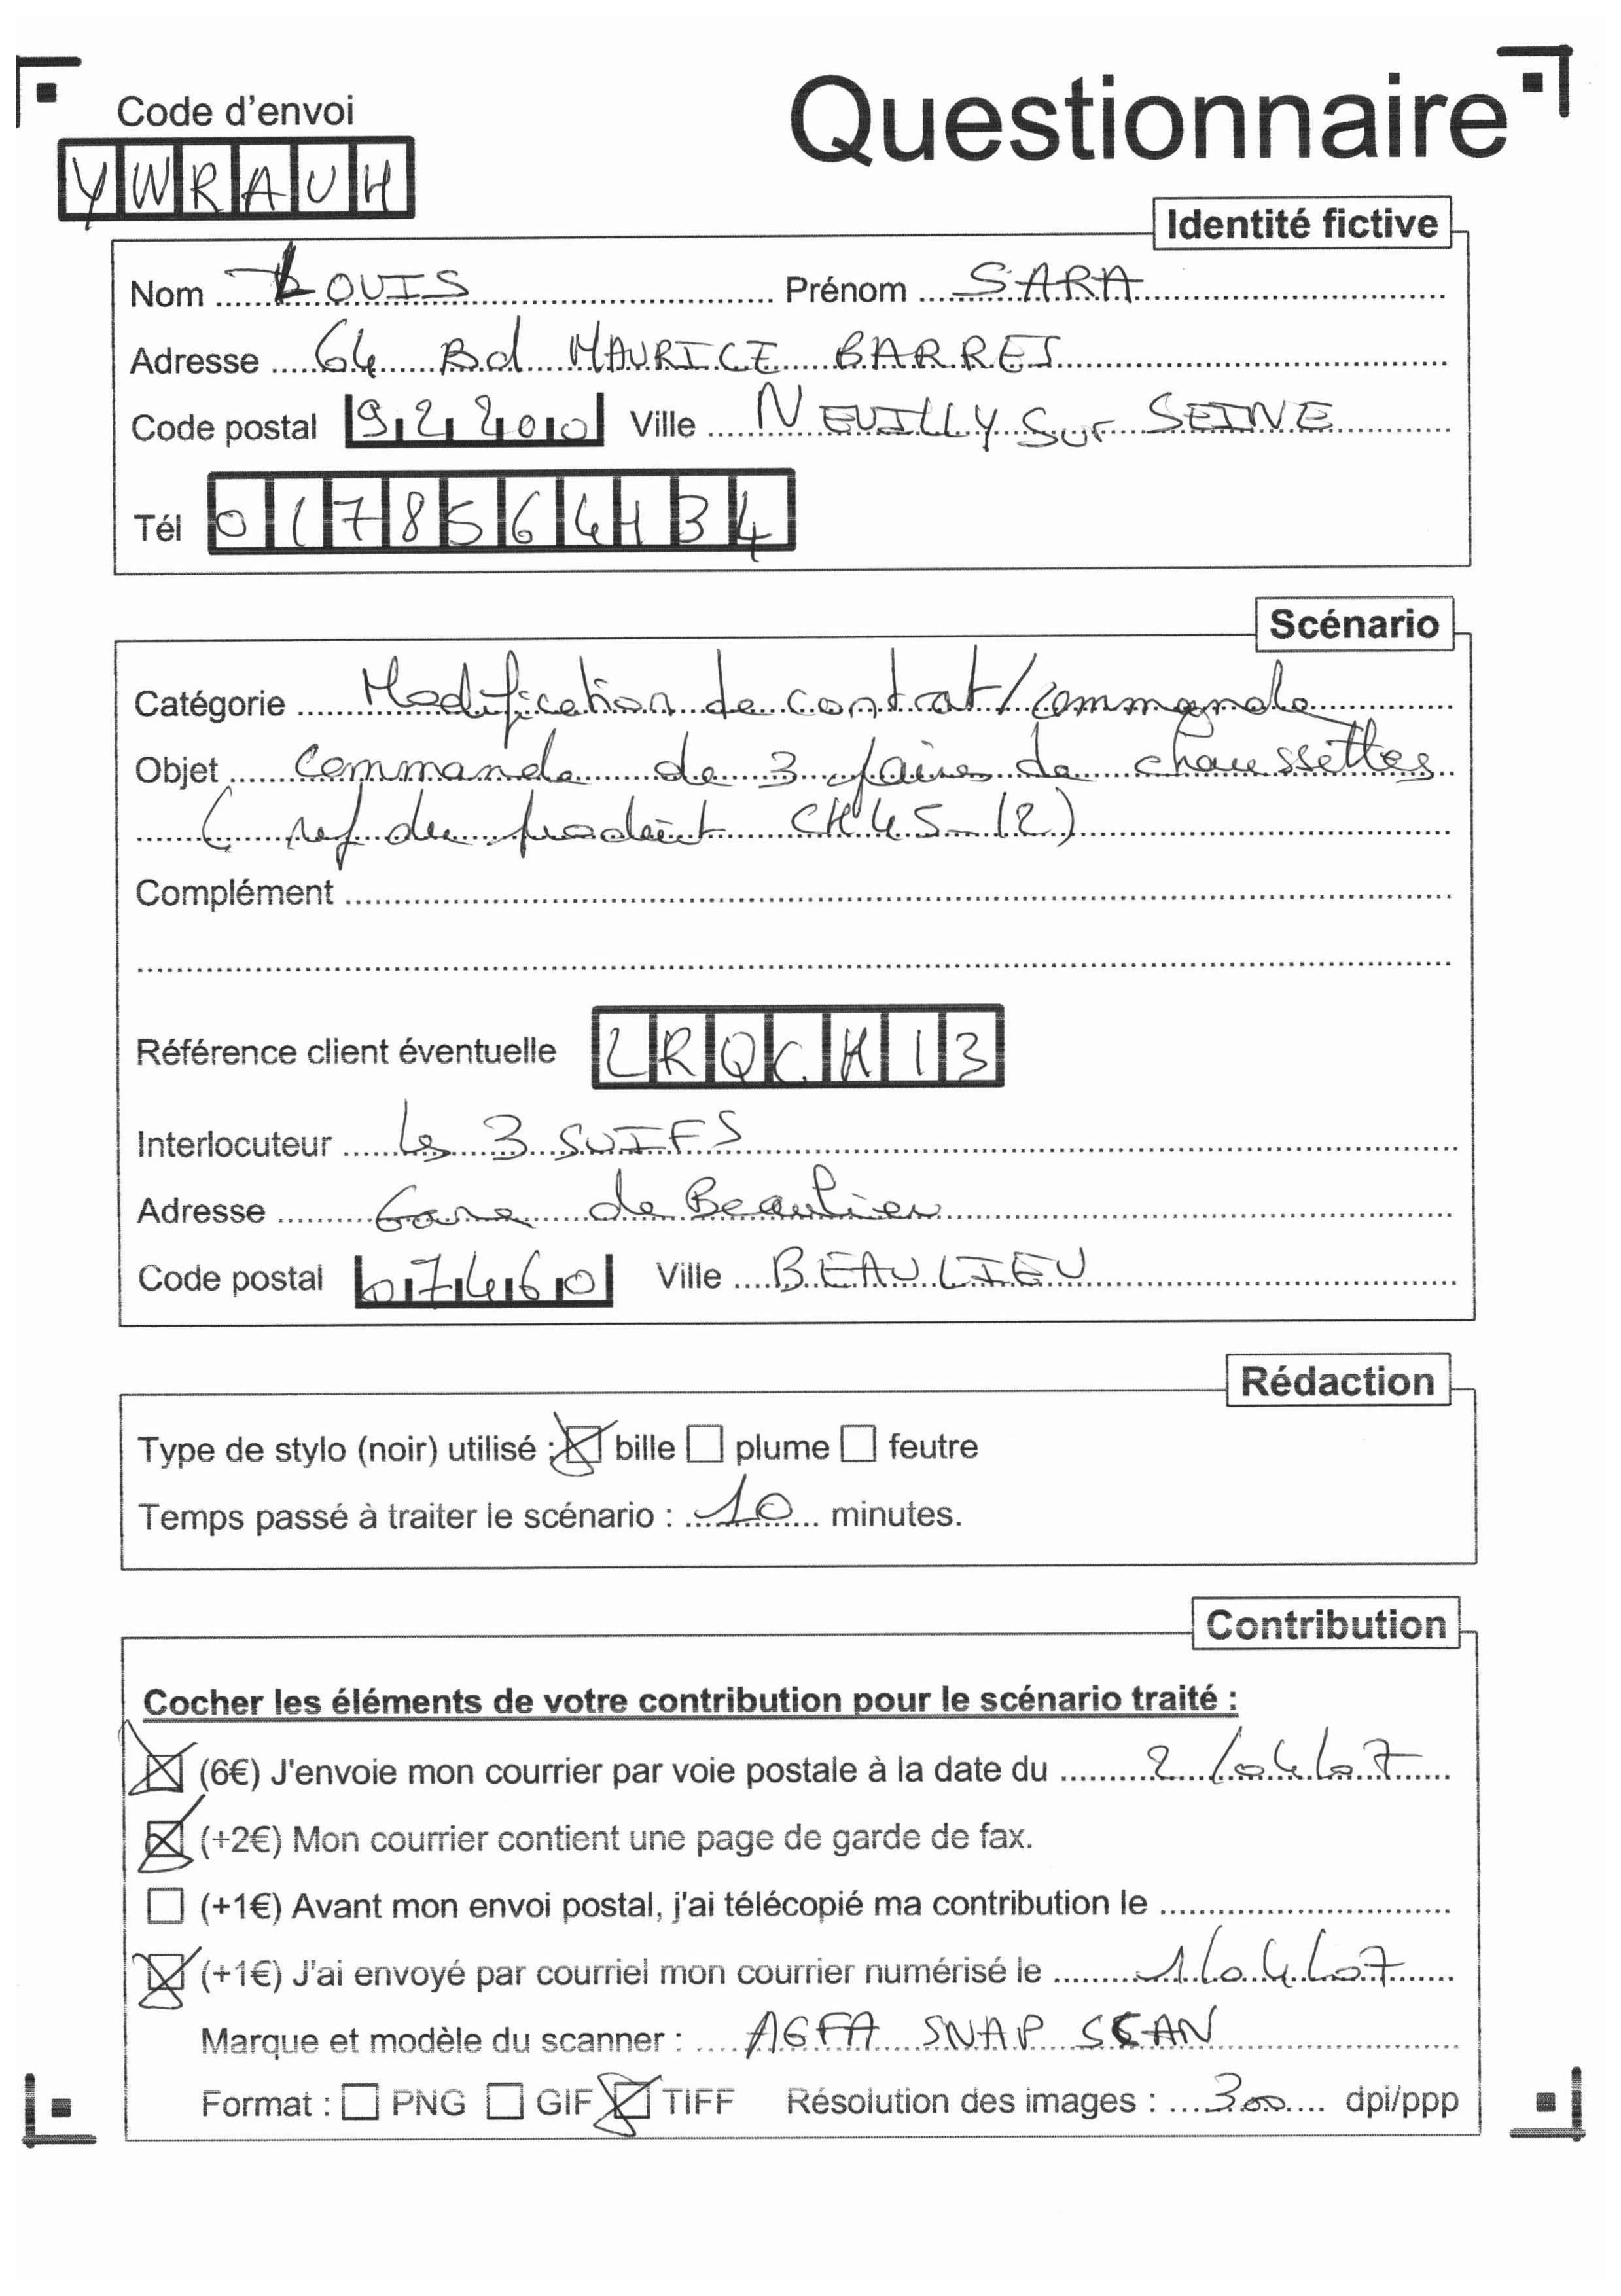 Questionnaire
Code d'envoi
YWRAUH
Identité fictive
Nom LOUIS Prénom SARA
Adresse 64 Bd MAURICE BARRES
Code postal 92200 Ville NEUILLY Sur SEINE
Tél
Scénario
Catégorie Modification de contrat/commande
Objet commande de 3 paires de chaussettes
(ref du produit CH45-12)
Complément
Référence client éventuelle LRQCH13
Interlocuteur les 3 SUIFS
Adresse Gare de Beaulieu
Code postal 07460 Ville BEAULIEU
Rédaction
Type de stylo (noir) utilisé : bille plume feutre
Temps passé à traiter le scénario : 10 minutes.
Contribution
Cocher les éléments de votre contribution pour le scénario traité :
(6€) J'envoie mon courrier par voie postale à la date du 2/04/07
(+2€) Mon courrier contient une page de garde de fax.
(+1€) Avant mon envoi postal, j'ai télécopié ma contribution le
(+1€) J'ai envoyé par courriel mon courrier numérisé le 1/04/07
Marque et modèle du scanner : AGFA SNAP SCAN
Format : PNG GIF TIFF Résolution des images : 300 dpi/ppp